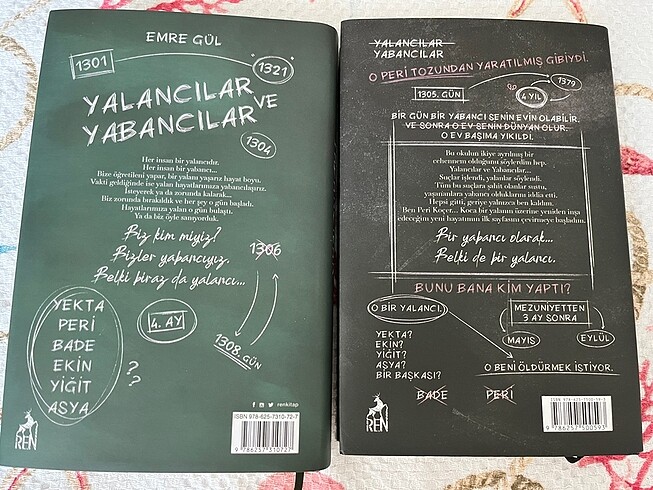 EMRE GÜL
1301
1321
YALANCILAR
VE
YABANCILAR
1304
Her insan bir yalancıdır.
Her insan bir yabancı...
Bize öğretileni yapar, bir yalanı yaşarız hayat boyu.
Vakti geldiğinde ise yalan hayatlarımıza yabancılaşırız.
İsteyerek ya da zorunda kalarak...
Biz zorunda bırakıldık ve her şey o gün başladı.
Hayatlarımıza yalan o gün bulaştı.
Ya da biz öyle sanıyorduk.
Biz kim miyiz?
Bizler yabancıyız.
Belki biraz da yalancı...
1306
YEKTA
PERİ
BADE
EKİN
YİĞİT
ASYA
?
?
4. AY
1308. GÜN
renkitap
REN
ISBN 978-625-7310-72-7
9 786257 310727
YALANCILAR
YABANCILAR
O PERİ TOZUNDAN YARATILMIŞ GİBİYDİ.
1305. GÜN
4 YIL
1379
BİR GÜN BİR YABANCI SENİN EVİN OLABİLİR.
VE SONRA O EV SENİN DÜNYAN OLUR.
O EV BAŞIMA YIKILDI.
Bu okulun ikiye ayrılmış bir
cehennem olduğunu söylerdim hep.
Yalancılar ve Yabancılar...
Suçlar işlendi, yalanlar söylendi.
Tüm bu suçlara şahit olanlar sustu,
yaşananlara yabancı olduklarını iddia etti.
Hepsi gitti, geriye yalnızca ben kaldım.
Ben Peri Koçer... Koca bir yalanın üzerine yeniden inşa
edeceğim yeni hayatımın ilk sayfasını çevirmeye başladım.
Bir yabancı olarak...
Belki de bir yalancı.
BUNU BANA KİM YAPTI?
O BİR YALANCI.
MEZUNİYETTEN
3 AY SONRA
MAYIS
EYLÜL
YEKTA?
EKİN?
YİĞİT?
ASYA?
BİR BAŞKASI?
O BENİ ÖLDÜRMEK İSTİYOR.
BADE
PERİ
REN
9 786257 500593